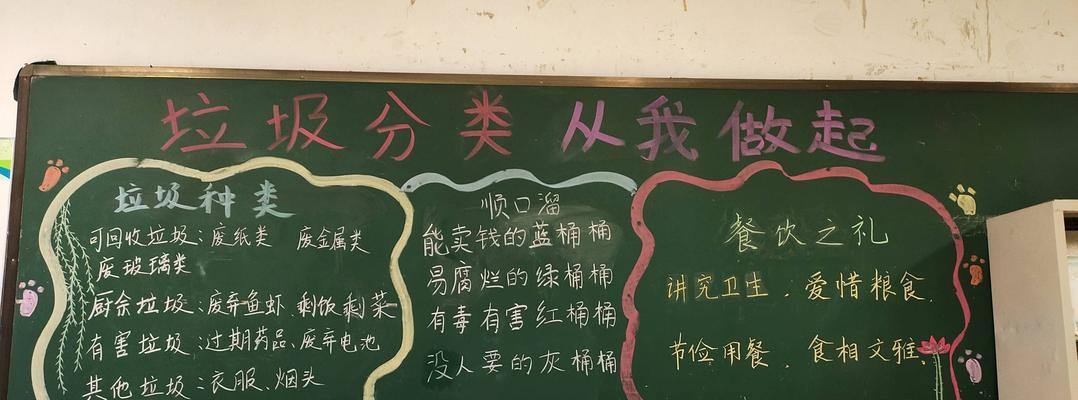 垃圾分类 从我做起
垃圾种类
可回收垃圾:废纸类 废金属类
废玻璃类
厨余垃圾:废弃鱼虾、剩饭剩菜
有害垃圾:过期药品、废弃电池
其他垃圾:衣服、烟头
顺口溜
能卖钱的蓝桶桶
易腐烂的绿桶桶
有毒有害红桶桶
没人要的灰桶桶
餐饮之礼
讲究卫生、爱惜粮食、
节俭用餐、食相文雅